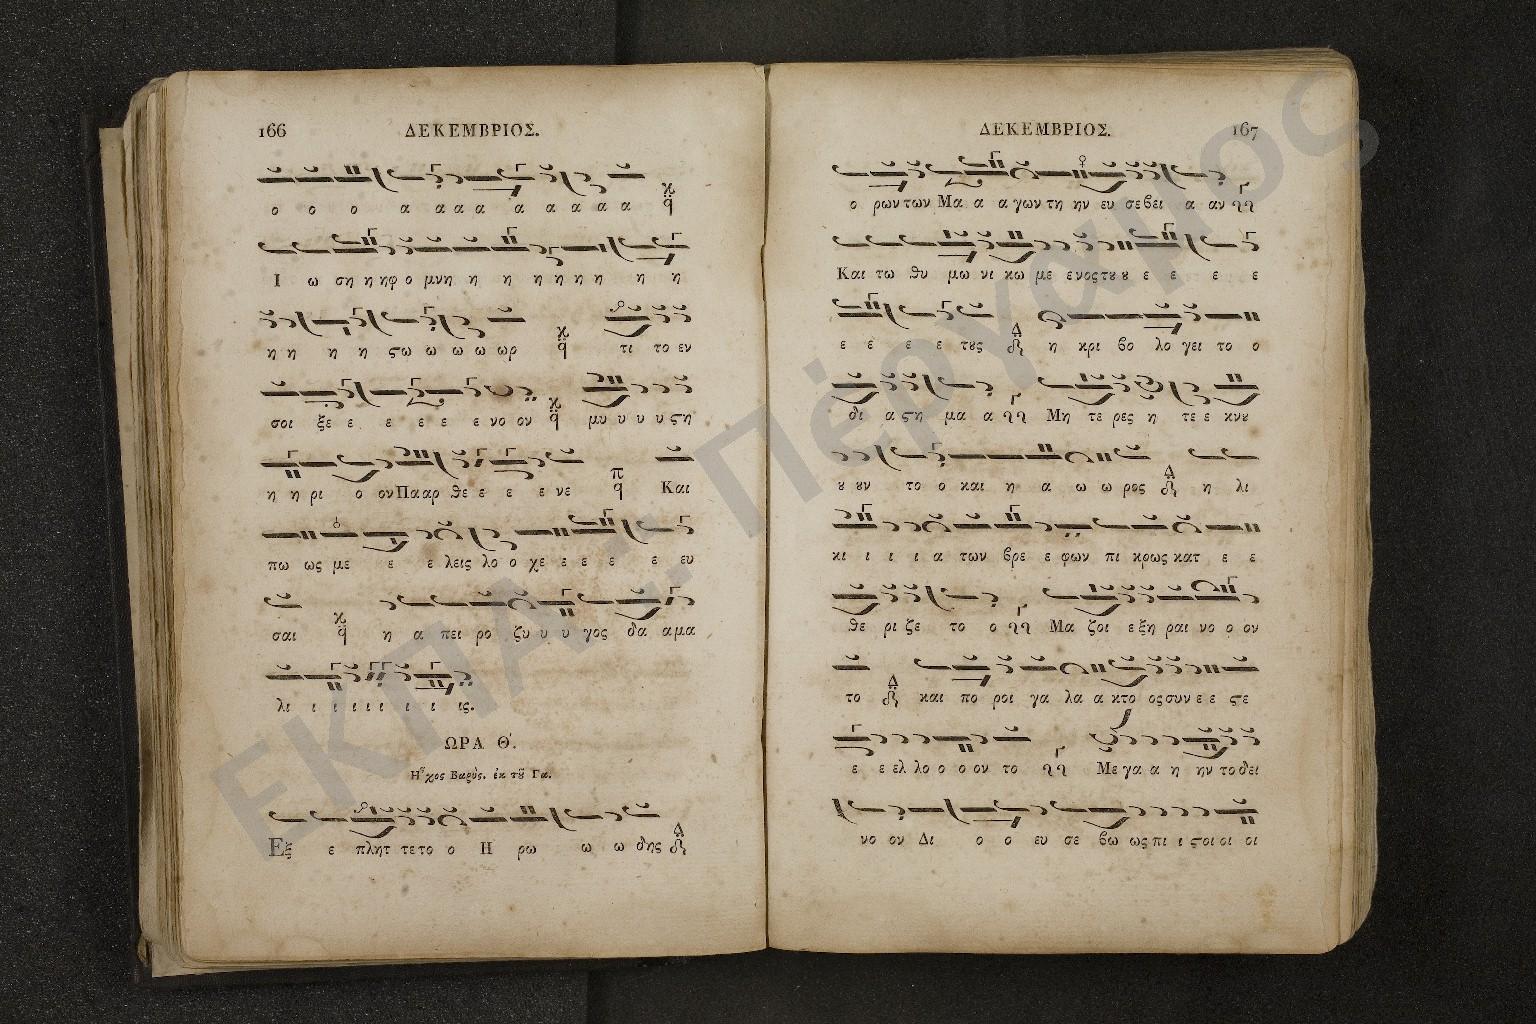 166
ΔΕΚΕΜΒΡΙΟΣ.
ο ο ο α α α α α α α α α
Ι ω ση η ηφ ο μνη η η η η η η η η
η η η η ϛω ω ω ω ωρ τι το εν
σοι ξε ε ε ε ε ε νο ον μυ υ υ υ ϛη
η η ρι ο ον Πα αρ θε ε ε ε νε Και
πω ως με ε ε λεις λο ο χε ε ε ε ε ευ
σαι η α πει ρο ζυ υ υ γος δα α μα
λι ι ι ι ι ι ι ι ις.
ΩΡΑ Θ΄.
Ἦχος Βαρὺς. ἐκ τȣ͂ Γα.
Εξ ε πλητ τε το ο Η ρω ω ω δης
ΔΕΚΕΜΒΡΙΟΣ.
167
ο ρων των Μα α α γων τη ην ευ σε βει α αν
Και τω θυ μω νι κω με ενος τȣ ȣ ε ε ε ε
ε ε ε ε τȣς η κρι βο λο γει το ο
δι α ϛη μα α Μη τε ρες η τε ε κνȣ
ȣ ȣν το ο και η α ω ω ρος η λι
κι ι ι ι α των βρε ε φων πι κρως κατ ε ε
θε ρι ζε το ο Μα ζοι ε ξη ραι νο ο ον
το και πο ροι γα λα α κτο ος συν ε ε ϛε
ε ε ελ λο ο ο ον το Με γα α η ην το δει
νο ον Δι ο ο ευ σε βω ως πι ι ϛοι οι οι
ΕΚΠΑ.: Πέργαμος